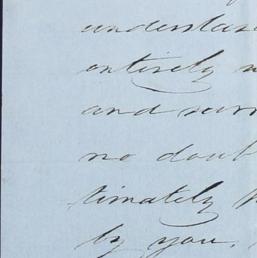 understand
entirely
and
no doubt
timately
by you.